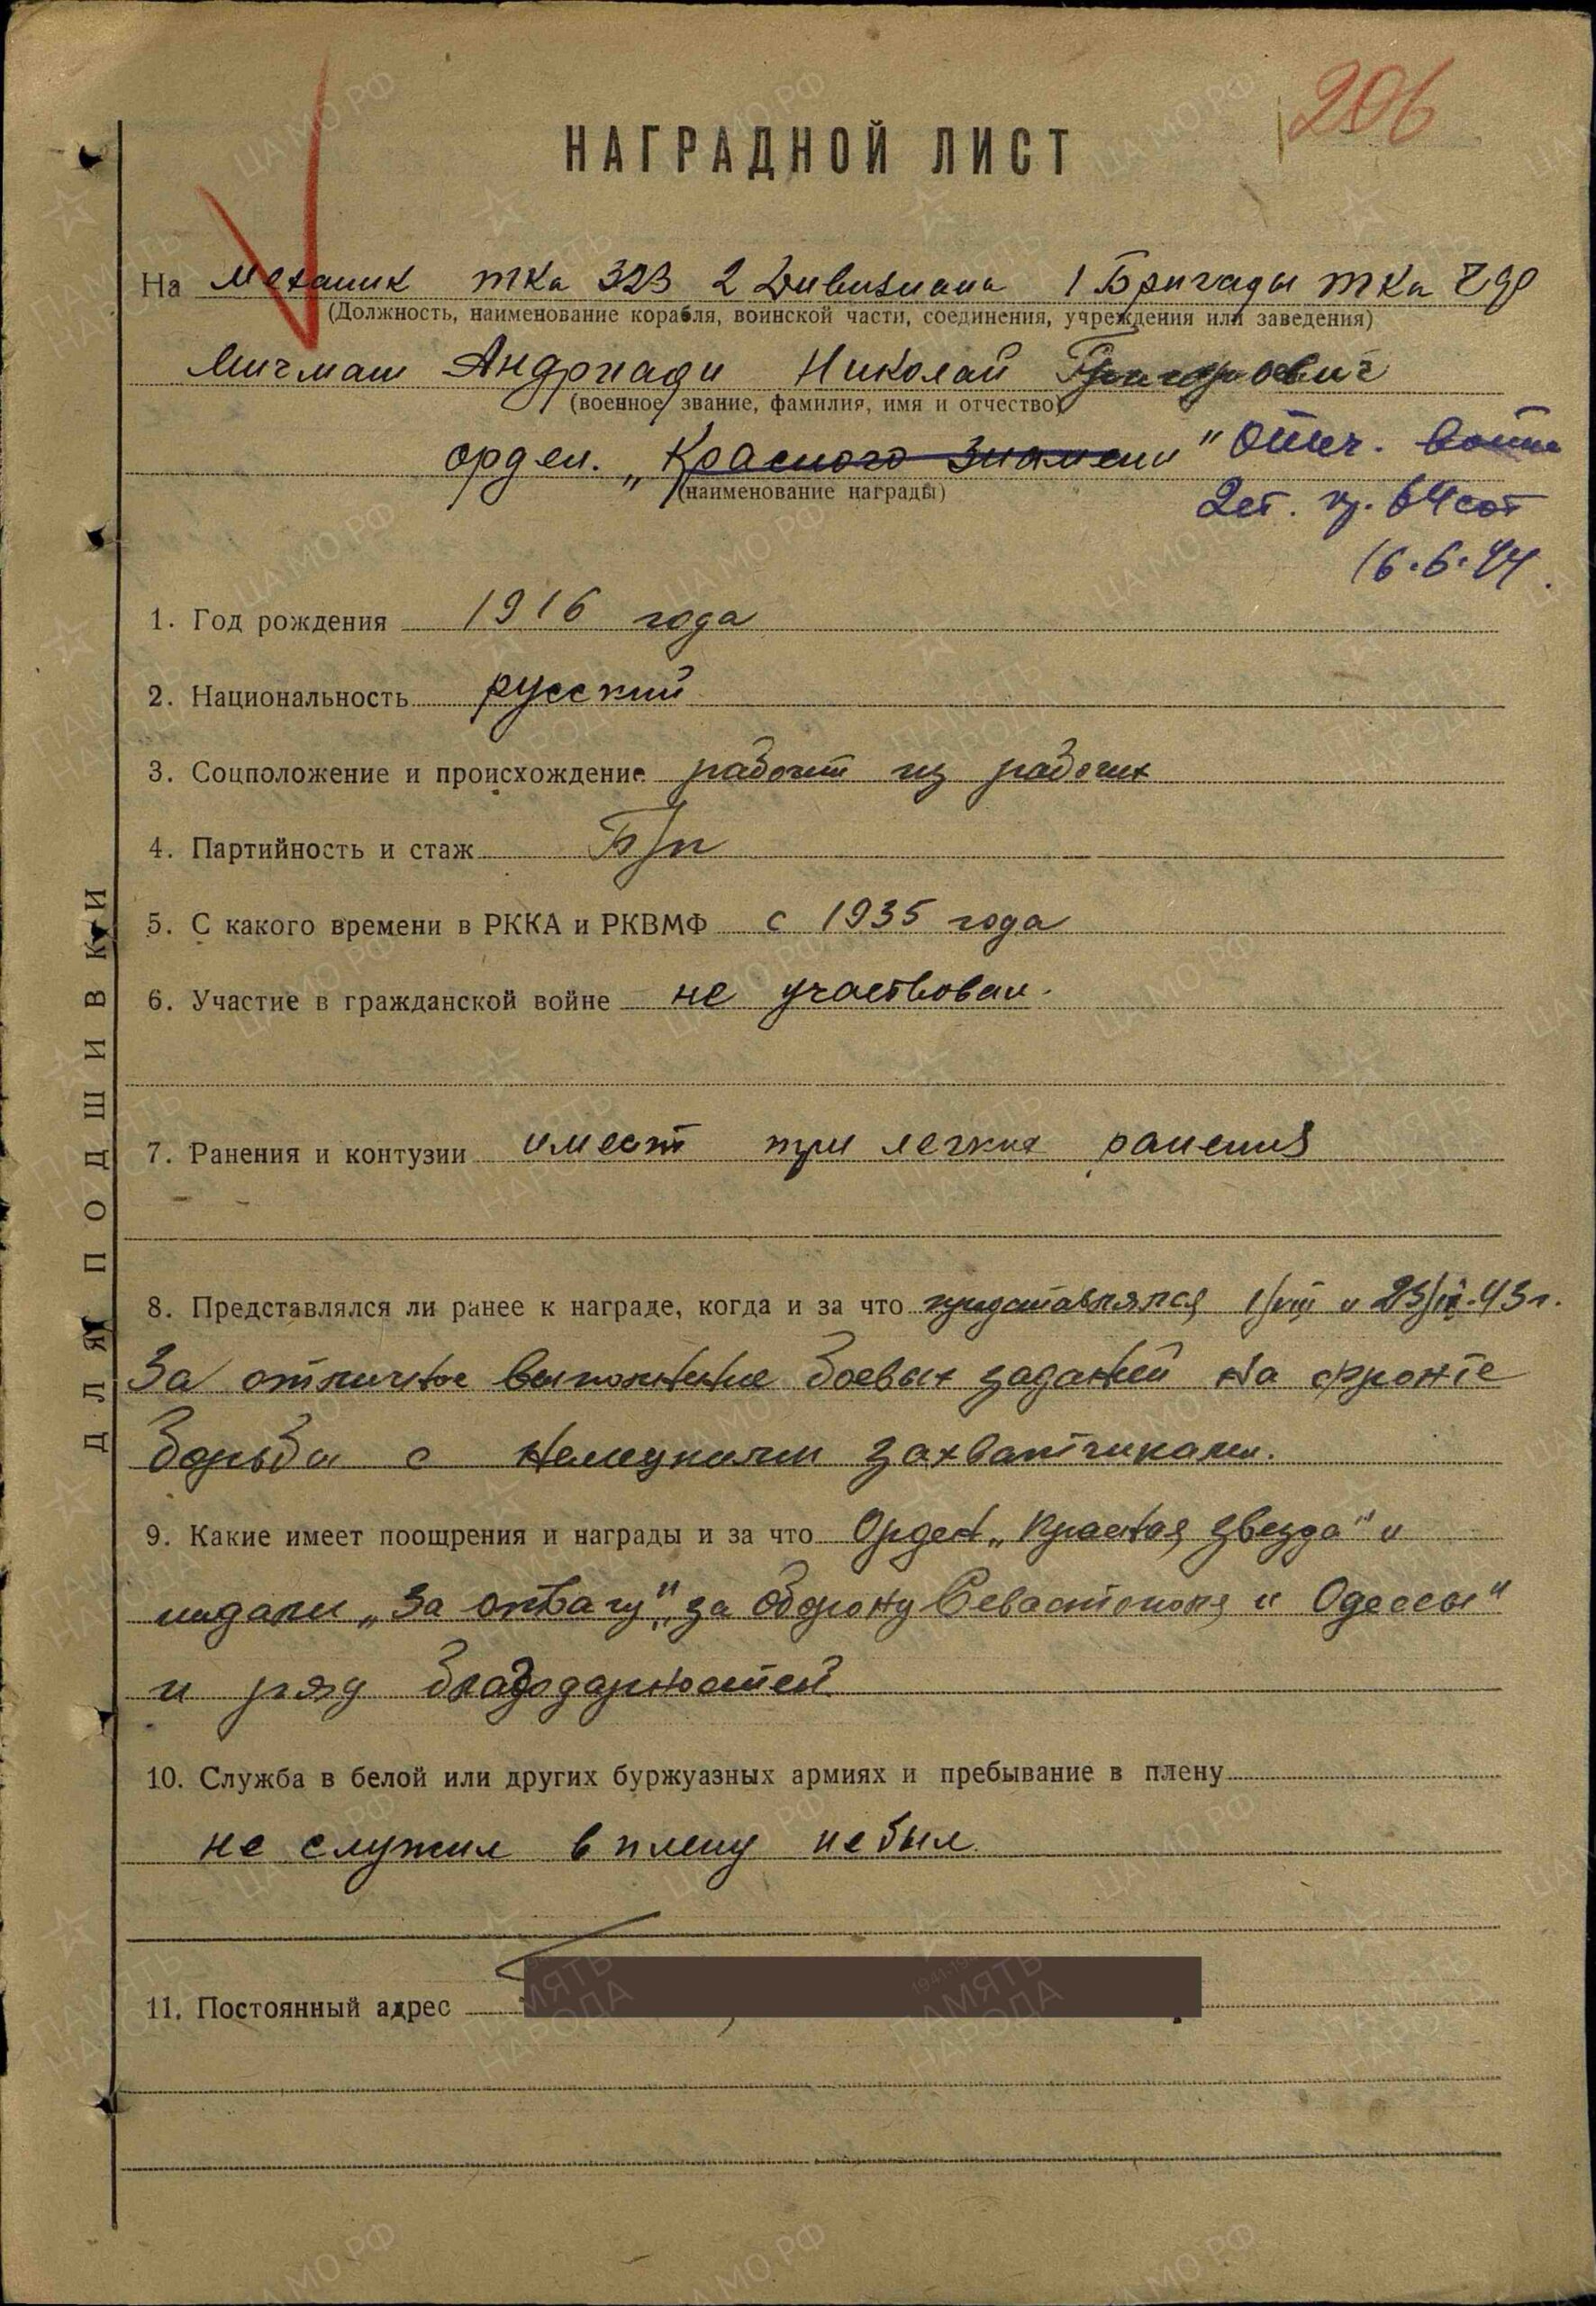 206
НАГРАДНОЙ ЛИСТ
На механик тка 323 2 Дивизиана 1 Бригады тка ЧФ
(Должность, наименование корабля, воинской части, соединения, учреждения или заведения)
мичман Андриади Николай Григорьевич
(военное звание, фамилия, имя и отчество)
орден. „Красного Знамени" Отеч. войны
(наименование награды)
2 ст. пр. 64
16.6.44.
1. Год рождения 1916 года
2. Национальность русский
3. Соцположение и происхождение рабочий из рабочих
4. Партийность и стаж Б/п
5. С какого времени в РККА и РКВМФ с 1935 года
6. Участие в гражданской войне не участвовал.
7. Ранения и контузии имеет три легких ранения
8. Представлялся ли ранее к награде, когда и за что представлялся 1/VIII и 43 г.
За отличное выполнение боевых заданий на фронте
борьбы с немецкими захватчиками.
9. Какие имеет поощрения и награды и за что Орден „Красная звезда" и
медали „За отвагу", „за оборону Севастополя и Одессы"
и ряд благодарностей
10. Служба в белой или других буржуазных армиях и пребывание в плену
не служил в плену не был.
11. Постоянный адрес
ДЛЯ ПОДШИВКИ
ЦАМО.РФ
ПАМЯТЬ НАРОДА